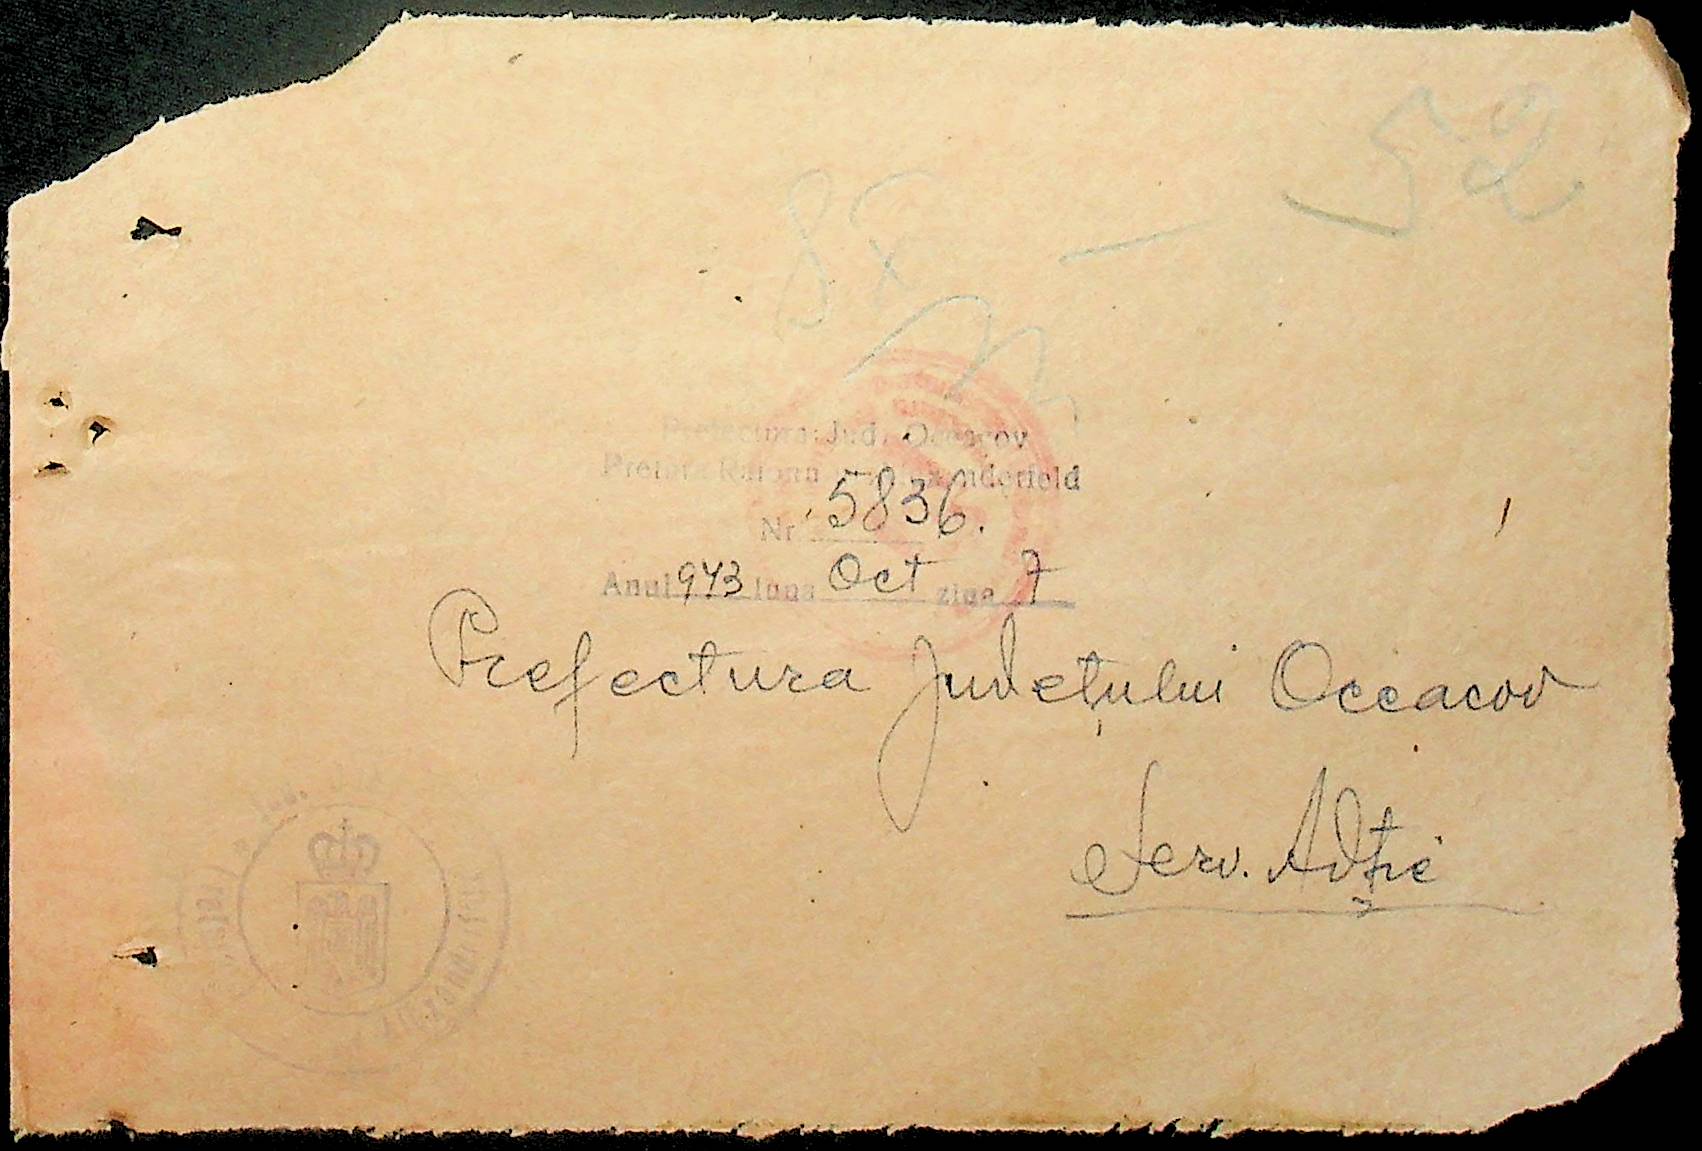 52
8 X —
Prefectura Jud. Oceacov
Pretura Raionu Alexanderfeld
Nr. 5836.
Anul 943 luna Oct ziua 7
Prefectura Județului Oceacov
Serv. Adției